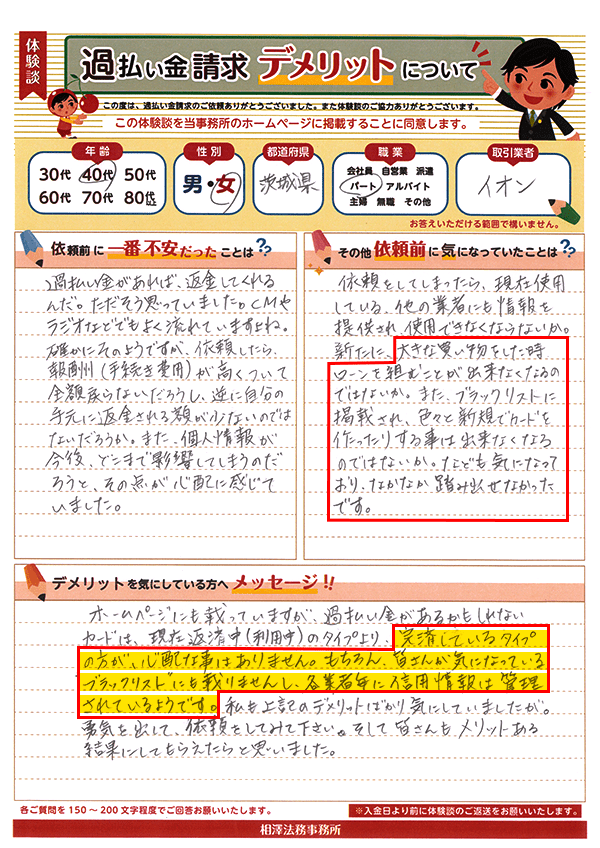 体験談
過払い金請求 デメリットについて
この度は、過払い金請求のご依頼ありがとうございました。また体験談のご協力ありがとうございます。
この体験談を当事務所のホームページに掲載することに同意します。
年齢
30代 40代 50代
60代 70代 80代以上
性別
男・女
都道府県
茨城県
職業
会社員 自営業 派遣
パート アルバイト
主婦 無職 その他
取引業者
イオン
お答えいただける範囲で構いません。
依頼前に一番不安だったことは??
過払い金があれば、返金してくれる
んだ。ただそう思っていました。CMや
ラジオなどでもよく流れていますよね。
確かにそのようですが、依頼したら、
報酬州(手続き費用)が高くついて
全額戻らないだろうし、逆に自分の
手元に返金される額が少ないのでは
ないだろうか。また、個人情報が
今後、どこまで影響してしまうのだ
ろうと、その点が心配に感じて
いました。
その他依頼前に気になっていたことは??
依頼をしてしまったら、現在使用
している、他の業者にも情報を
提供され、使用できなくならないか。
新たに、大きな買い物をした時
ローンを組むことが出来なくなるの
ではないか。また、ブラックリストに
掲載され、色々と新規でカードを
作ったりする事は出来なくなる
のではないか。なども気になって
おり、なかなか踏み出せなかった
です。
デメリットを気にしている方へメッセージ!!
ホームページにも載っていますが、過払い金があるかもしれない
カードは、現在返済中(利用中)のタイプより、完済しているタイプ
の方が、心配な事はありません。もちろん、皆さんが気になっている
ブラックリストにも載りませんし、各業者年に信用情報は管理
されているようです。私も上記のデメリットばかり気にしていましたが。
勇気を出して、依頼をしてみて下さい。そして皆さんもメリットある
結果にしてもらえたらと思いました。
各ご質問を150～200文字程度でご回答お願いいたします。
※入金日より前に体験談のご返送をお願いいたします。
相澤法務事務所